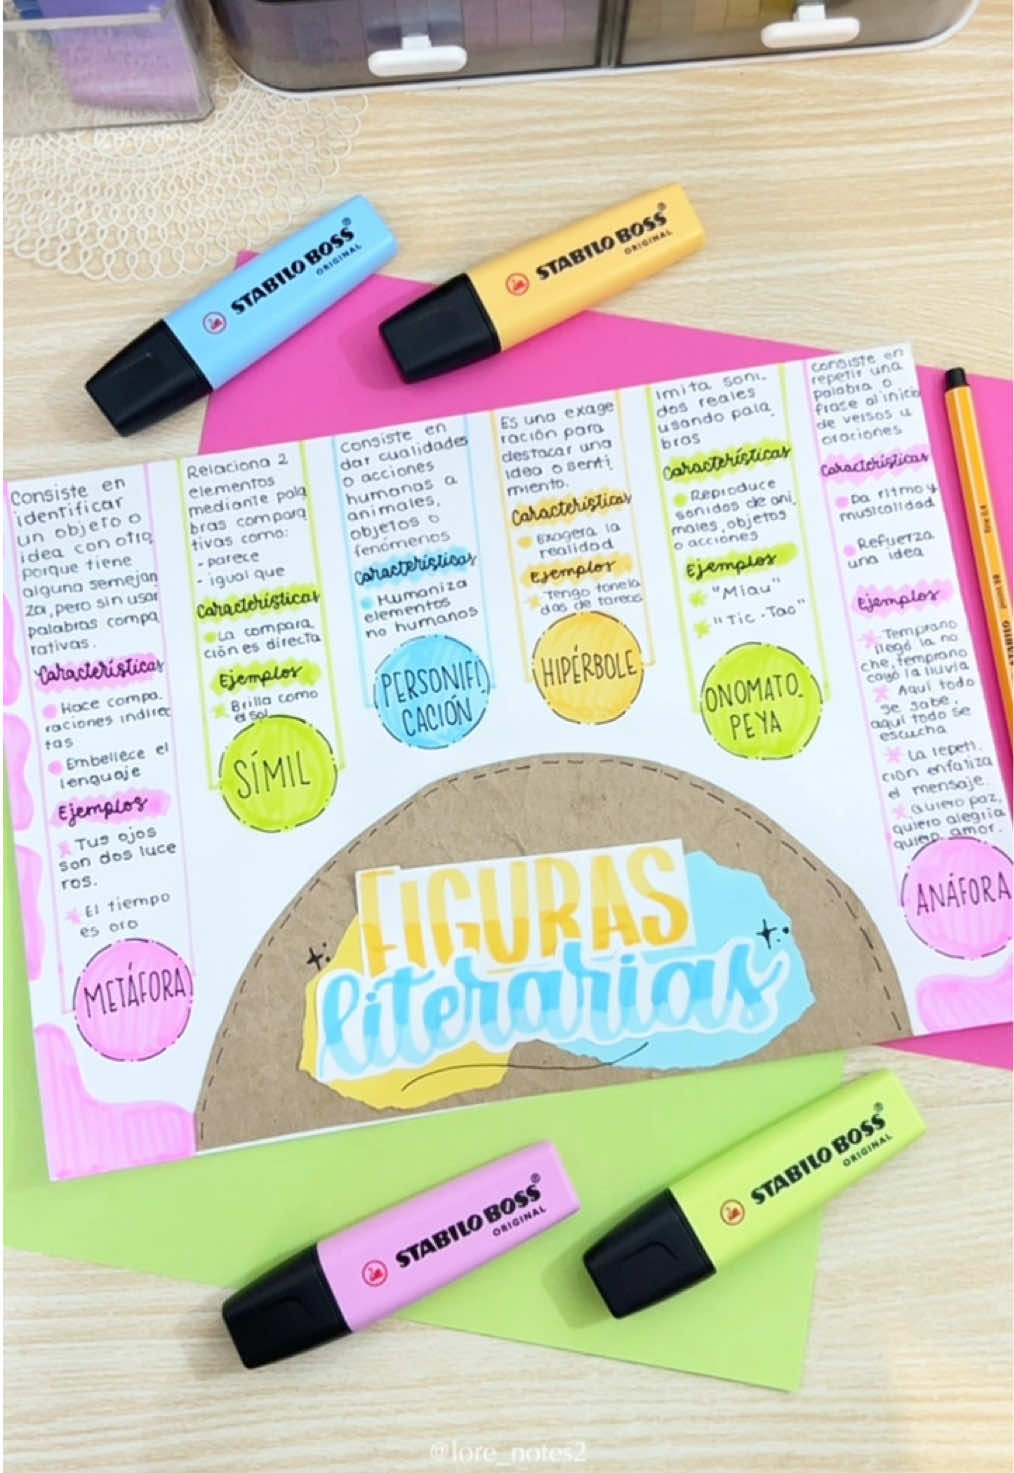 STABILO BOSS®
ORIGINAL
STABILO BOSS®
ORIGINAL
Consiste en
identificar
un objeto o
idea con otro,
porque tiene
alguna semejan
za, pero sin usar
palabras compa
rativas.
Características
Hace compa.
raciones indirec
tas
Embellece el
lenguaje
Ejemplos
Tus ojos
son dos luce
ros.
El tiempo
es oro
METÁFORA
Relaciona 2
elementos
mediante pala
bras compara
tivas como:
- parece
- igual que
Características
La compara
ción es directa
Ejemplos
Brilla como
el sol
SÍMIL
consiste en
dar cualidades
o acciones
humanas a
animales,
objetos o
fenómenos
Características
Humaniza
elementos
no humanos
PERSONIFI
CACIÓN
Es una exage
ración para
destacar una
idea o senti.
miento.
Características
Exagera la
realidad
Ejemplos
Tengo tonela
das de tareas
HIPÉRBOLE
Imita soni.
dos reales
usando pala.
bras
Características
Reproduce
sonidos de ani.
males, objetos
o acciones
Ejemplos
"Miau"
"Tic-Tac"
ONOMATO_
PEYA
consiste en
repetir una
palabra o
frase al inicio
de versos u
oraciones
Características
Da ritmo y
musicalidad
Refuerza
una idea
Ejemplos
Temprano
llegó la no
che, temprano
cayó la lluvia
Aquí todo
se sabe,
aquí todo se
escucha
La repeti.
ción enfatiza
el mensaje.
Quiero paz,
quiero alegría
quiero amor.
ANÁFORA
FIGURAS
literarias
STABILO BOSS®
ORIGINAL
STABILO BOSS®
ORIGINAL
@lore_notes2